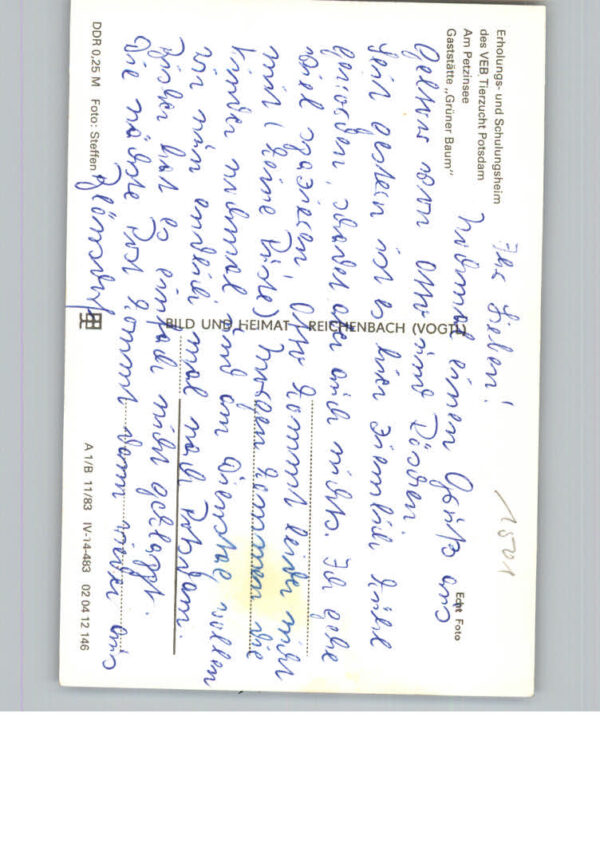 Erholungs- und Schulungsheim
des VEB Tierzucht Potsdam
Am Petzinsee
Gaststätte „Grüner Baum"
Ihr Lieben!
Nochmal einen Gruß aus
Geltow von Otto und Röschen.
Seit gestern ist es hier ziemlich kühl
geworden, schadet aber auch nichts. Ich gehe
viel spazieren Otto kommt leider nicht
mit (seine Füße) Morgen kommen die
Kinder nochmal und am Dienstag wollen
wir nun endlich mal nach Potsdam.
Bisher hat es einfach nicht geklappt.
Die nächste Post kommt dann wieder aus
Echt Foto
15001
BILD UND HEIMAT REICHENBACH (VOGTL)
DDR 0,25 M Foto: Steffen
A 1/B 11/83 IV-14-483 02 04 12 146